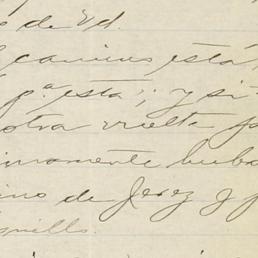 de Ud.
camino está
pª ésta; y si
otra vuelta p
mamente hubo
ino de Jerez y p
quillo.